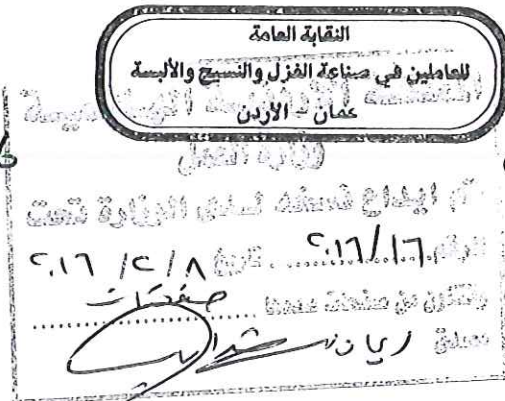 النقابة العامة
للعاملين في صناعة الغزل والنسيج والألبسة
عمان - الأردن
وزارة العمل
تم ايداع نسخة لدى الوزارة تحت
الرقم ٢٠١٦/١٦ تاريخ ٢٠١٦ /٢ /٨
وتتكون من صفحات عددها صفحتان